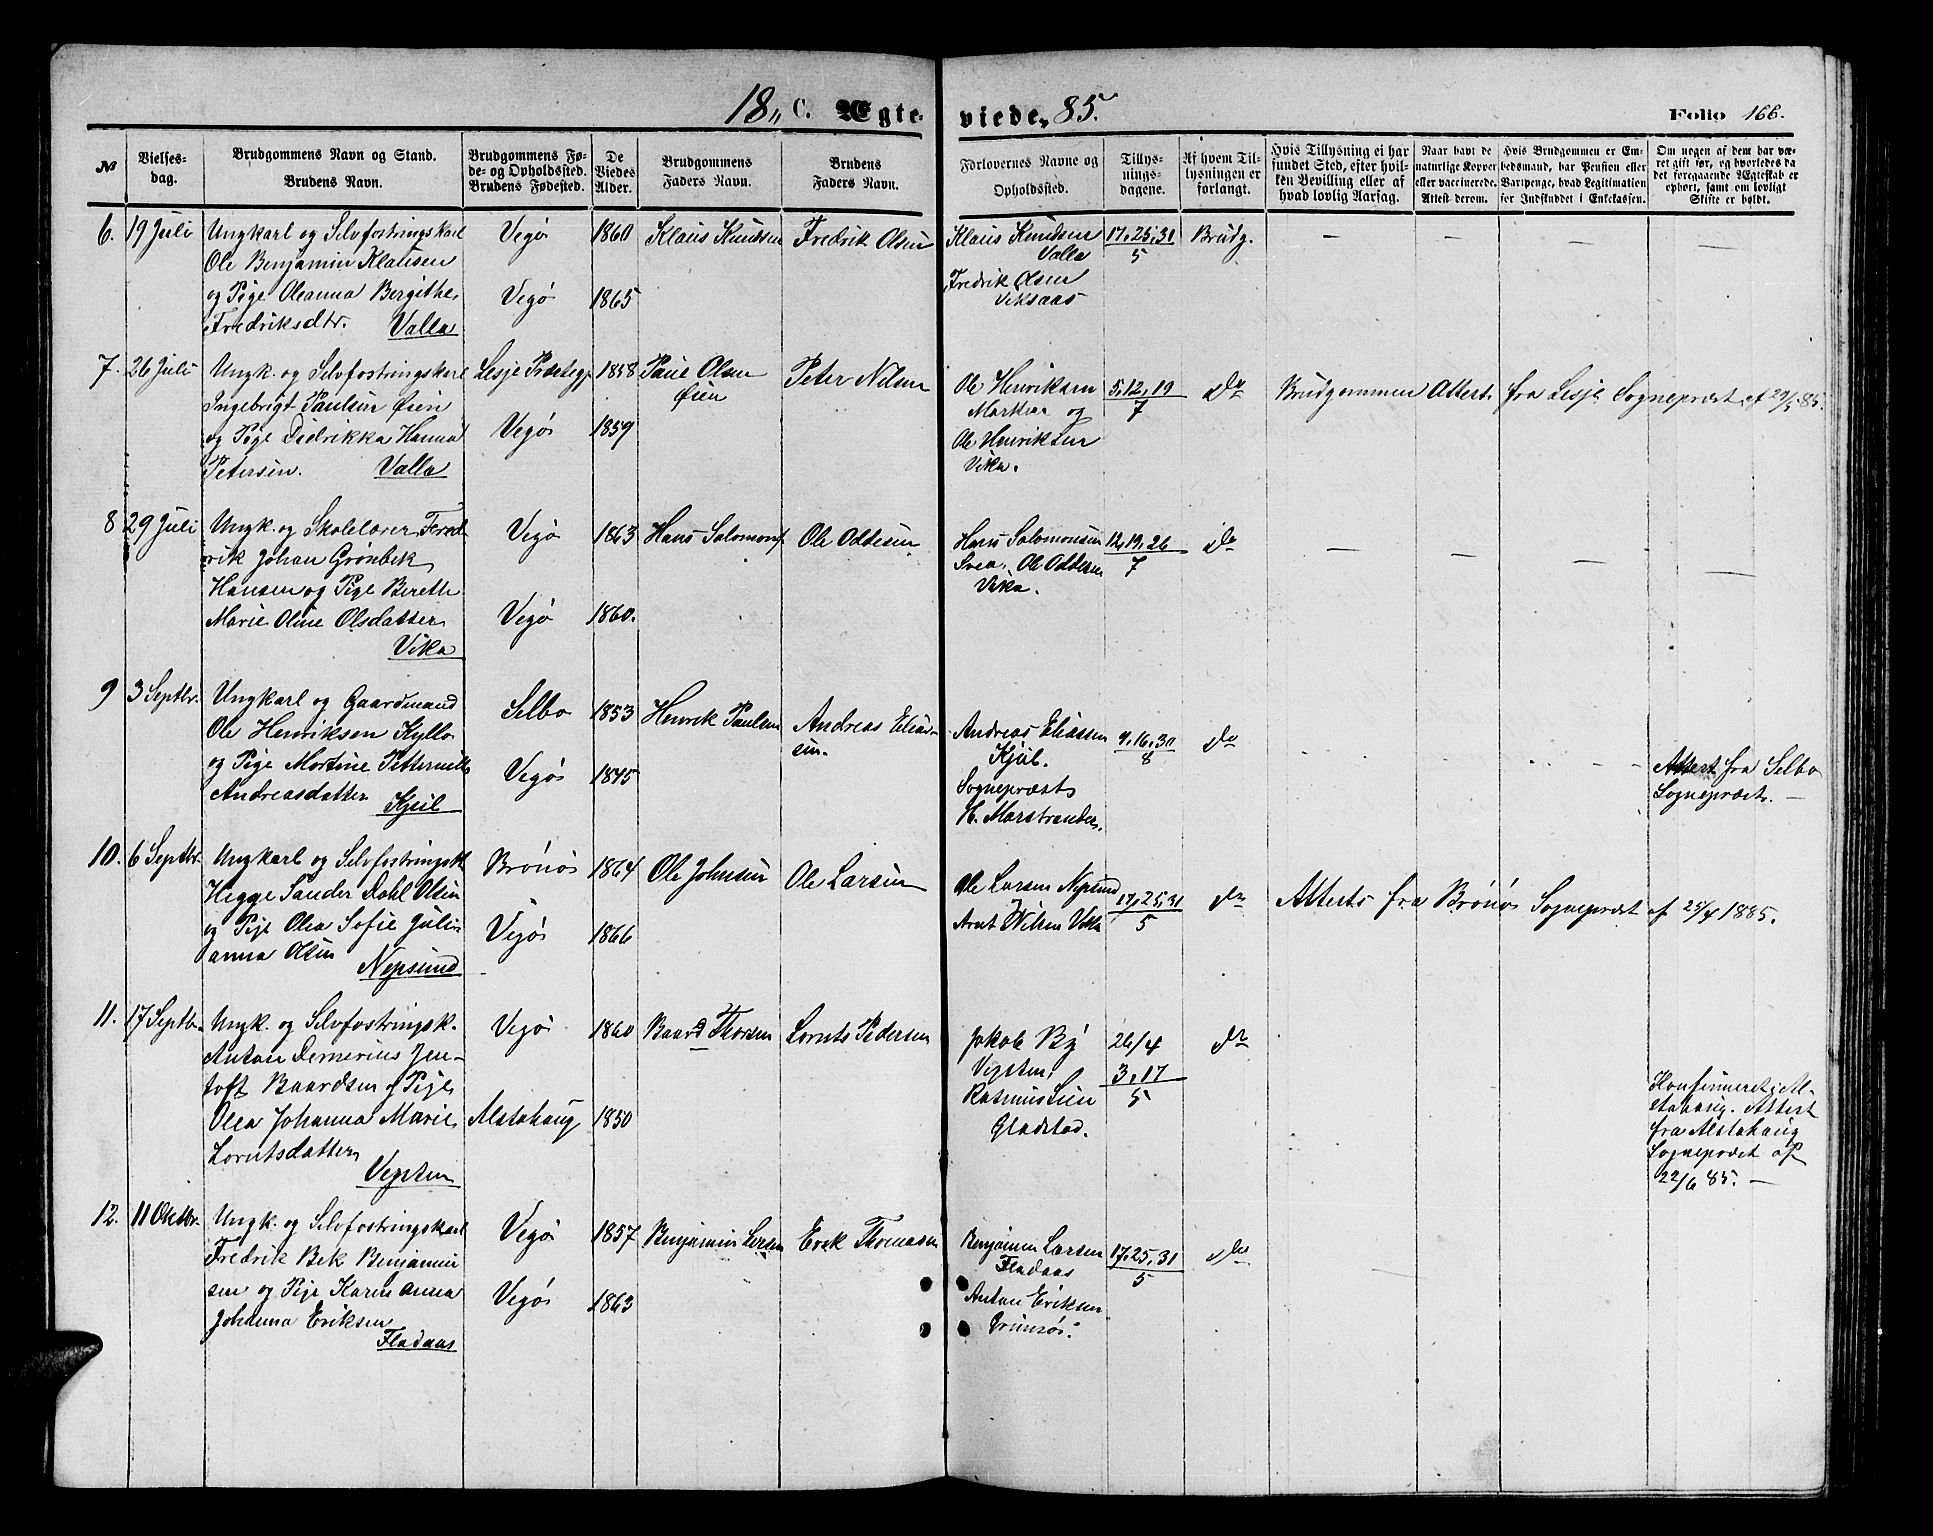 18,, C. Ægteviede,, 85.
Folio 166.
№
Vielsesdag.
Brudgommens Navn og Stand.
Brudens Navn.
Brudgommens Føde- og Opholdssted.
Brudens Fødested.
De Viedes Alder.
Brudgommens Faders Navn.
Brudens Faders Navn.
Forlovernes Navne og Opholdssted.
Tillysningsdagene.
Af hvem Tillysningen er forlangt.
Hvis Tillysning ei har fundet Sted, efter hvilken Bevilling eller af hvad lovlig Aarsag.
Naar havt de naturlige Kopper eller vaccinerede. Attest derom.
Hvis Brudgommen er Embedsmand, har Pension eller Vartpenge, hvad Legitimation for Indskuddet i Enkekassen.
Om nogen af dem har været gift før, og hvorledes da det foregaaende Ægteskab er ophørt, samt om lovligt Skifte er holdt.
6. 19 Juli
Ungkarl og Selvfostringskarl
Ole Benjamin Klausen
og Pige Oleanna Bergithe
Fredriksdtr. Valla
Vegø 1860
Vegø 1865
Klaus Knudsen
Fredrik Olsen
Klaus Knudsen
Valla
Fredrik Olsen
Viksaas
17,25,31
5
Brudg.
— — — —
7. 26 Juli
Ungk. og Selvfostringskarl
Ingebrigt Paulsen Øien
og Pige Didrikka Hanna
Petersen. Valla
Lesje Præstegj. 1858
Vegø 1859
Paul Olsen
Øien
Peter Nilsen
Ole Henriksen
og
Ole Henriksen
Vika.
5,12,19
7
do
Brudgommen Attest. fra Lesje Sognepræst af 29/5 85.
8 29 Juli
Ungk. og Skolelærer Fred-
rik Johan Grønbek
Hansen og Pige Berethe
Marie Oline Olsdatter
Vika
Vegø 1863
Vegø 1860.
Hans Salomons
Ole Oddesen
Hans Salomonsen
Ole Oddesen
Vika.
12,19,26
7
do
— — — —
9 3 Septbr.
Ungkarl og Gaardmand
Ole Henriksen Kyllo
og Pige Martine Petternille
Andreasdatter Kjul
Selbo 1853
Vegø 1845
Henrik Paulsen
Andreas Elias-
sen.
Andreas Eliassen
Kjul.
Sognepræst
H. Marstrander.
9,16,30
8
do
Attest fra Selbo
Sognepræst. —
10. 6 Septbr.
Ungkarl og Selvfostringsk.
Hegge Sander Dahl Olsen
og Pige Olea Sofie Juli-
anna Olsen
Nepsund
Brønø 1864
Vegø 1866
Ole Johnsen
Ole Larsen
Ole Larsen Nepsund
Arnt Nilsen Vika
17,25,31
5
do
Attest fra Brønø Sognepræst af 25/4 1885.
11. 17 Septbr.
Ungk. og Selvfostringsk.
Anton Demerius Jen-
toft Baardsen og Pige
Olea Johanna Marie
Lorntsdatter
Vegsten
Vegø 1860
Alstahaug 1850
Baard Thorsen
Lornts Pedersen
Jakob By
Vegsten,
Rasmus Lien
Gladstad.
26/4
3,17
5
do
Konfirmeret i Al-
stahaug. Attest
fra Alstahaug
Sognepræst af
22/6 85. —
12. 11 Oktbr.
Ungk. og Selvfostringskarl
Fredrik Bek Benjamin-
sen og Pige Karen Anna
Johanna Eriksen
Fladaas
Vegø 1857
Vegø 1863
Benjamin Larsen
Erik Thomasen
Benjamin Larsen
Fladaas
Anton Eriksen
Grimsø.
17,25,31
5
do